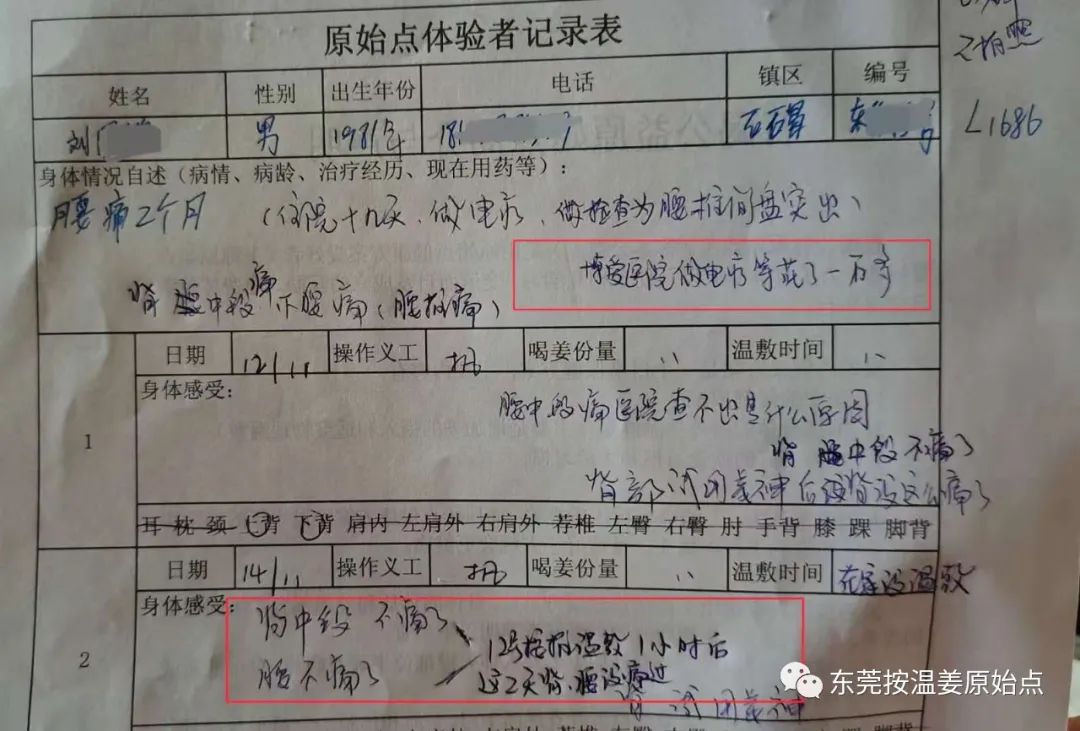 之拍照
原始点体验者记录表
姓名 性别 出生年份 电话 镇区 编号
刘 男 1981年 18 石碣 东 号
L1686
身体情况自述（病情、病龄、治疗经历、现在用药等）：
腰痛2个月 （住院十九天，做电疗，做检查为腰椎间盘突出）
博爱医院做电疗等花了一万多
背中段痛 下腰痛（腰椎痛）
日期 12/11 操作义工 喝姜份量 温敷时间
1
身体感受：
腰中段痛医院查不出是什么原因
背 中段不痛了
背部试用姜神后说背没这么痛了
耳 枕 颈 上背 下背 肩内 左肩外 右肩外 荐椎 左臀 右臀 肘 手背 膝 踝 脚背
日期 14/11 操作义工 喝姜份量 温敷时间 在家没温敷
2
身体感受：
背中段 不痛了
腰不痛了
12号按推温敷1小时后
这2天背、腰没痛过
背 试用姜神
东莞按温姜原始点